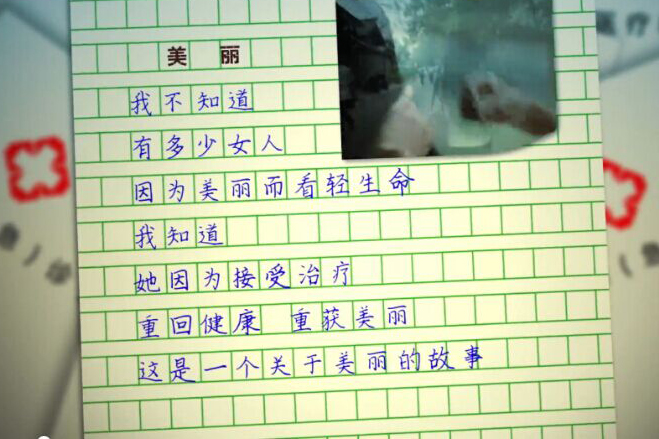 美 丽
我不知道
有多少女人
因为美丽而看轻生命
我知道
她因为接受治疗
重回健康 重获美丽
这是一个关于美丽的故事